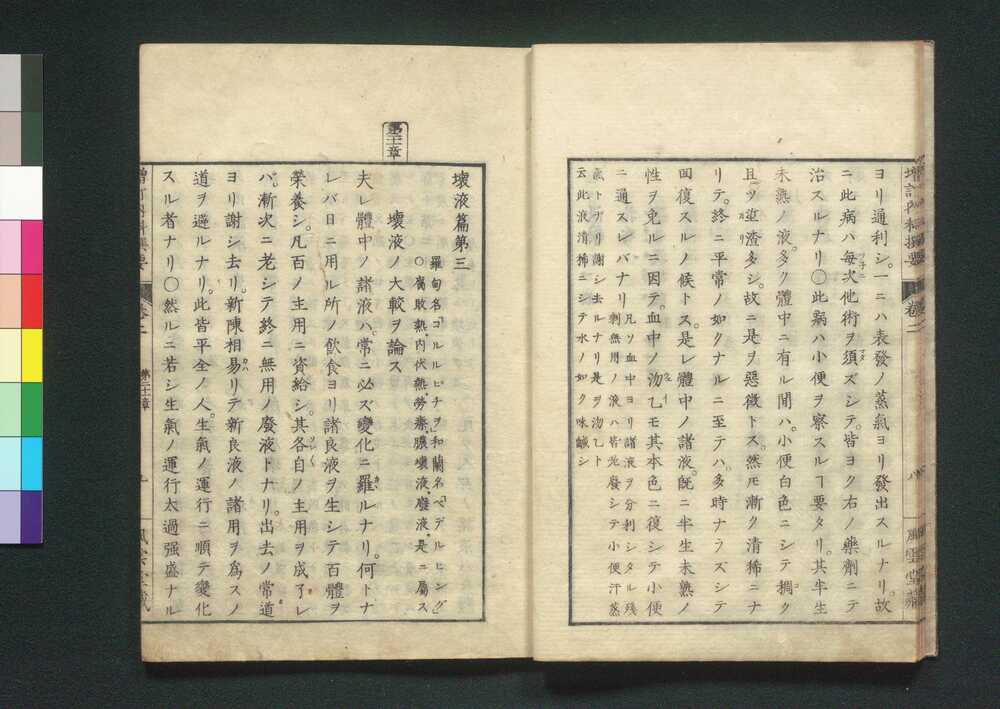 増訂内科撰要 巻二 八 風雲堂蔵
ヨリ通利シ。一ニハ表發ノ蒸氣ヨリ發出スルナリ。故
ニ此病ハ每次他術ヲ須ズシテ。皆ヨク右ノ藥劑ニテ
治スルナリ〇此翳ハ小便ヲ察スルヿ要タリ。其半生
未熟ノ液。多ク體中ニ有ル間ハ。小便白色ニシテ稠ク
且ツ渣多シ。故ニ是ヲ惡徴トス。然𪜈漸ク清稀ニナ
リテ。終ニ平常ノ如クナルニ至テハ。多時ナラズシテ
回復スルノ候トス。是レ體中ノ諸液。既ニ半生未熟ノ
性ヲ免ルニ因テ。血中ノ沕乙モ其本色ニ復シテ小便
ニ通スレバナリ 凡ソ血中ヨリ諸液ヲ分利シタル残
剰無用ノ液ハ皆先廢シテ小便汗蒸
氣トナリ謝シ去ルナリ是ヲ沕乙ト
云此液清稀ニシテ水ノ如ク味鹹シ
第二十章
壊液篇第三
羅甸名コルルヒチヲ〇和蘭名ベデルヒング
〇腐敗熱。内伏熱。勞瘵。膿壊液。廢液。是ニ屬ス
壊液ノ大較ヲ論ス
夫レ體中ノ諸液ハ。常ニ必ズ變化ニ罹ルナリ。何トナ
レバ日ニ用ル所ノ飲食ヨリ諸良液ヲ生シテ百體ヲ
榮養シ。凡百ノ主用ニ資給シ。其各自ノ主用ヲ成了レ
ハ。漸次ニ老シテ終ニ無用ノ廢液トナリ。出去ノ常道
ヨリ謝シ去リ。新陳相易リテ新良液ノ諸用ヲ爲スノ
道ヲ遏ルナリ。此皆平全ノ人。生氣ノ運行ニ順テ變化
スル者ナリ〇然ルニ若シ生氣ノ運行太過强盛ナル
増訂内科撰要 巻二 第二十章 風雲堂蔵